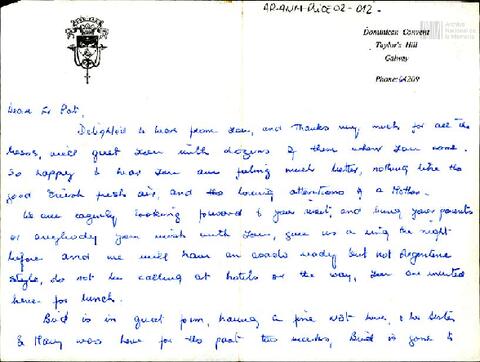 AR-ANM-
02-012.
Archivo
Nacional de
la Memoria
Dominican Convent
Taylor's Hill
Galway
Phone: 64209
Dear Fr Pat,
Delighted to hear from you, and thanks very much for all the
news, will greet you with dozens of them when you come.
So happy to hear you are feeling much better, nothing like the
good Irish fresh air, and the loving attentions of a Mother.
We are eagerly looking forward to your visit, and bring your parents
or anybody you wish with you, give us a ring the night
before and we will have an ready but not Argentine
style, do not be calling at hotels on the way, you are invited
here for lunch.
is in great form, having a fine rest here, her sister
& Mary was here for the past two weeks, is gone to